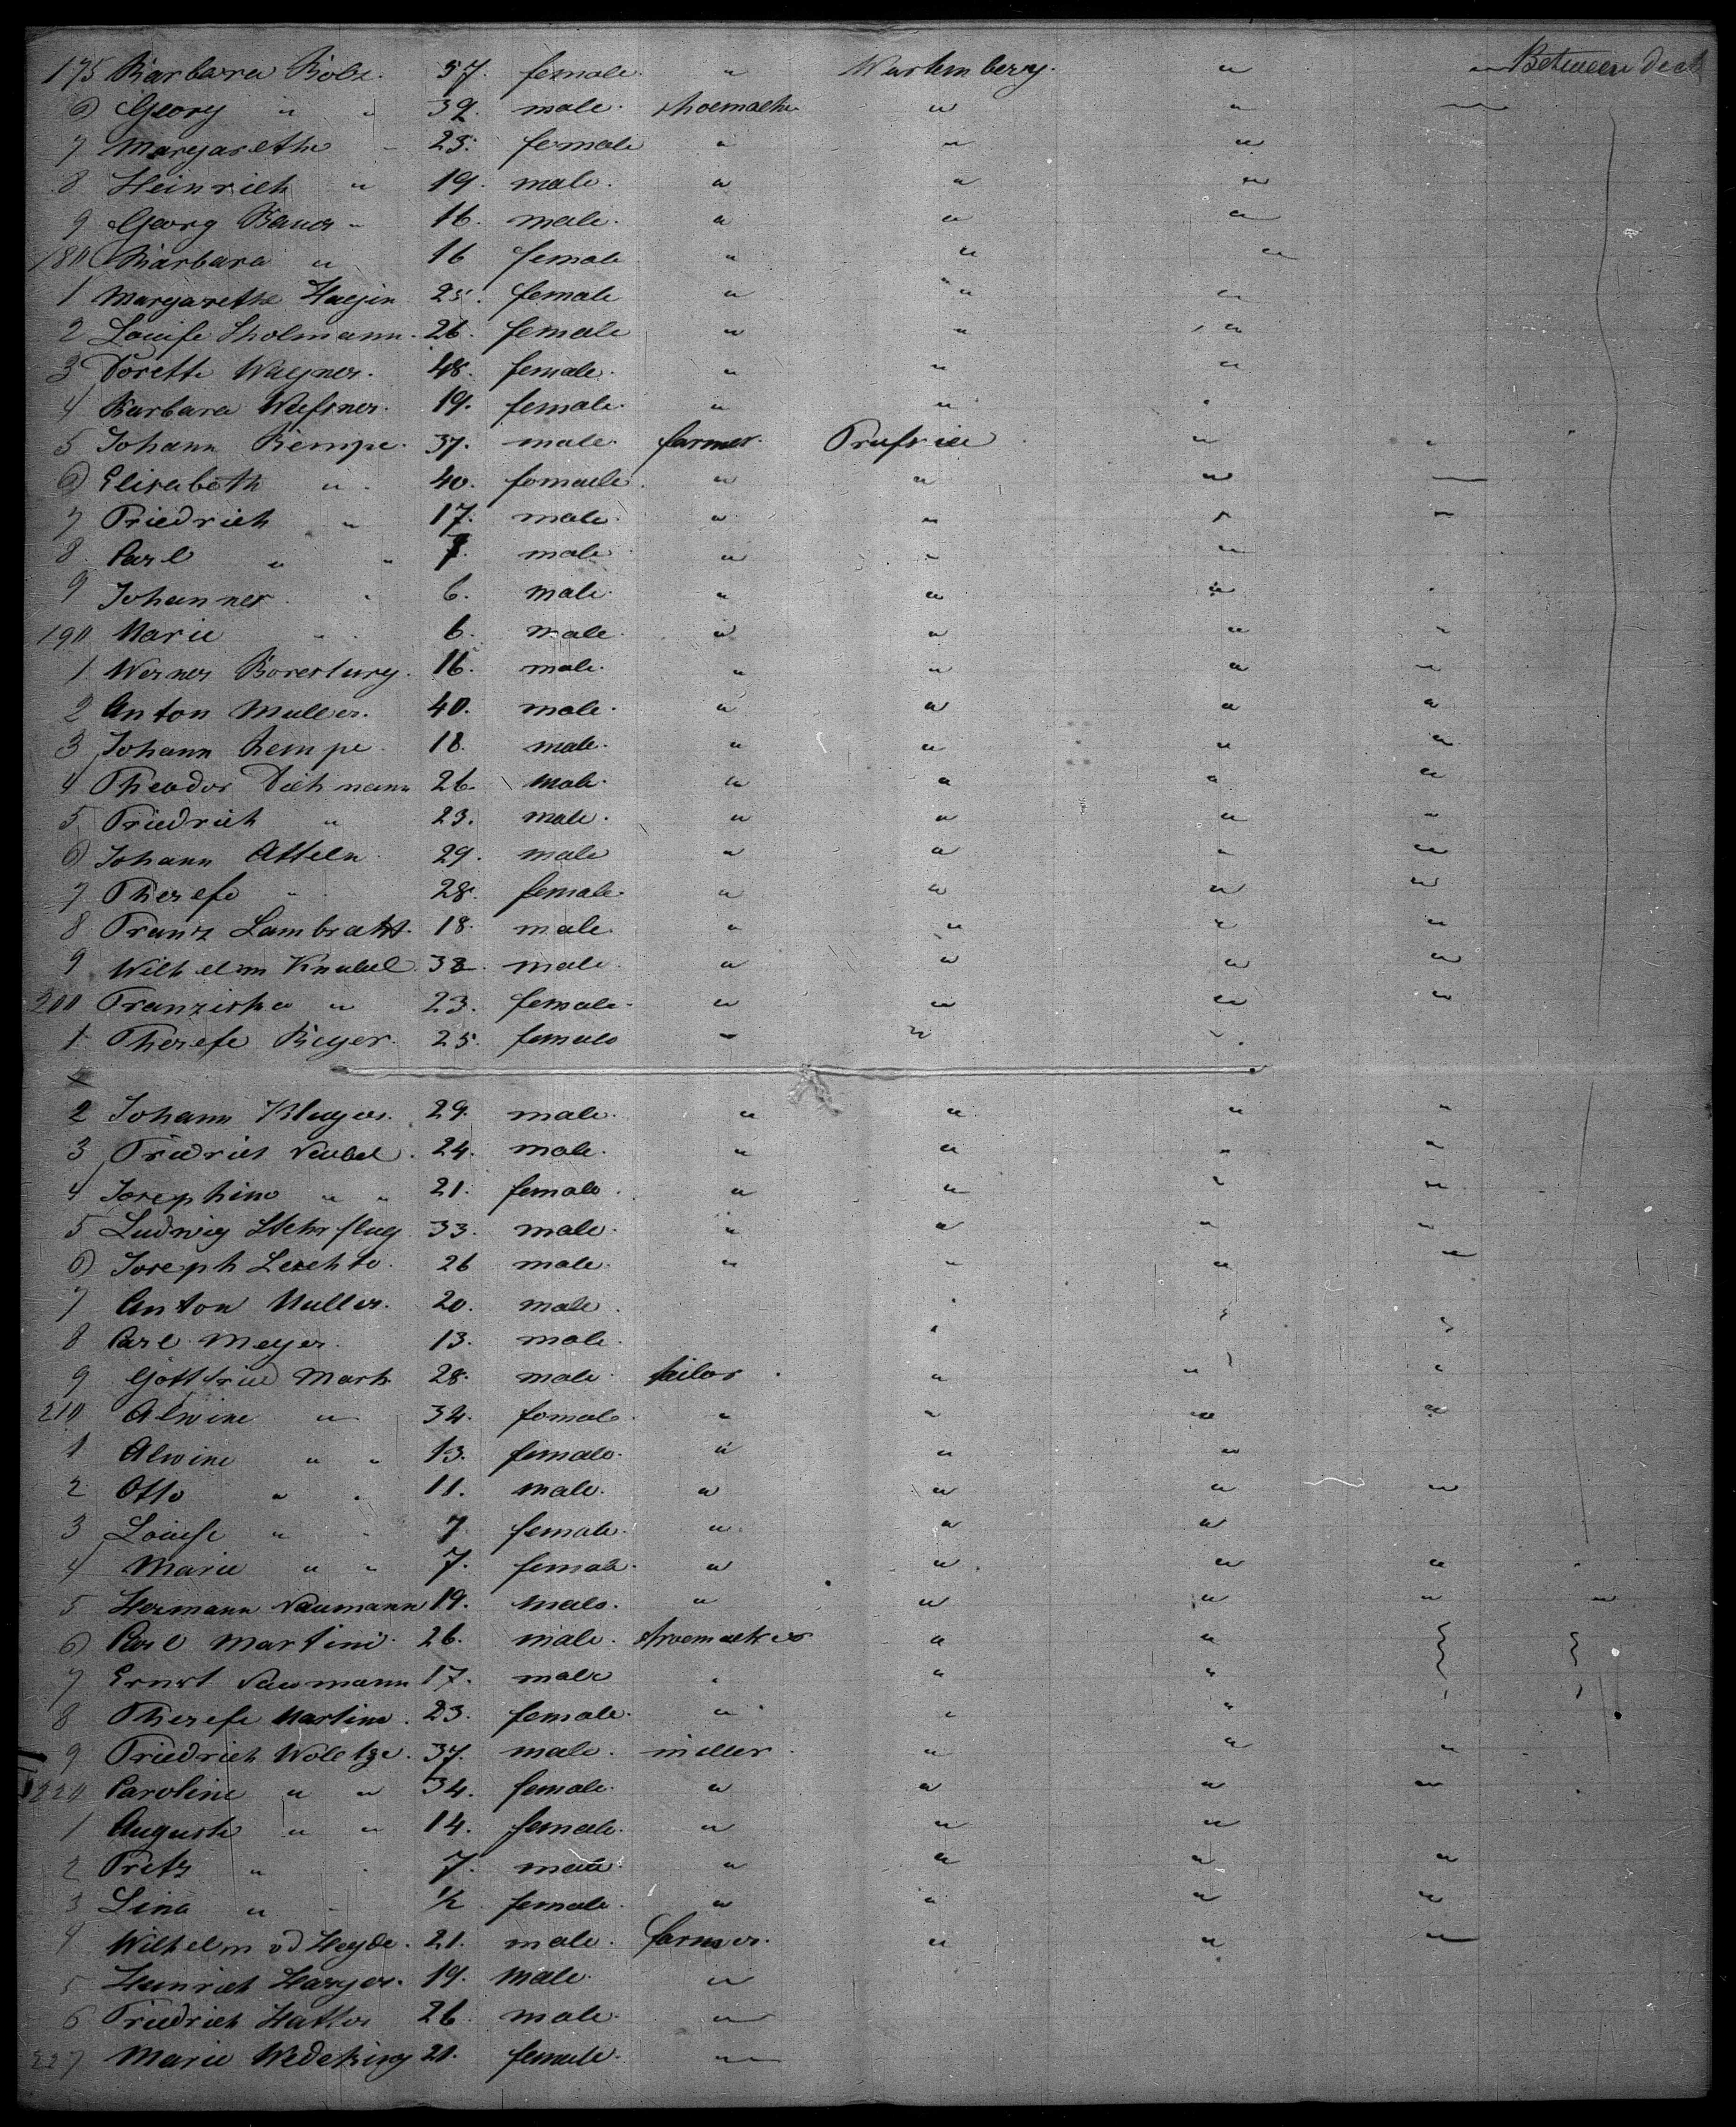 175 Barbara Bolz. 57. female. " Wurtemberg. " " Between deck
6 Georg " " 39. male. shoemaker " " "
7 Margarethe " 23. female " " "
8 Heinrich " 19. male. " " "
9 Georg Bauer " 16. male. " " "
180 Barbara " 16 female " " "
1 Margarethe 25. female " " "
2 Louise Sholmann. 26. female " " "
3 Dorette Wagner. 48. female. " " "
4 Barbara Wefsner. 19. female. " "
5 Johann Kempe. 37. male. farmer. Prufsia " "
6 Elisabeth " 40. female. " " " "
7 Friedrich " 17. male. " " " "
8 Carl " " 7. male " " "
9 Johannes " 6. male. " " "
190 Marie " 6. male. " " " "
1 Werner 16. male. " " " "
2 Anton Muller. 40. male. " " " "
3 Johann Kempe. 18. male. " " " "
4 Theodor Diehmann 26. male. " " " "
5 Friedrich " 23. male. " " " "
6 Johann Atteln 29. male " " " "
7 Therese " 28. female. " " " "
8 Franz Lambracht. 18. male. " " " "
9 Wilhelm Knubel. 32. male. " " " "
200 Franziska " 23. female. " " " "
1 Therese Beyer. 25. female " " "
2 Johann 29. male. " " " "
3 Friedrich Neubel. 24. male. " " " "
4 Josephine " " 21. female. " " " "
5 Ludwig 33. male. " " " "
6 Joseph Leschte. 26 male. " " " "
7 Anton Muller. 20. male.
8 Carl Meyer. 13. male.
9 Gottfried Mark. 28. male. tailor. " " "
210 Alwine " 34. female. " " " "
1 Alwine " " 13. female. " " "
2 Otto " " 11. male. " " " "
3 Louise " " 7 female. " " "
4 Marie " " 7. female. " " " "
5 Hermann Naumann 19. male. " " " " "
6 Carl Martini. 26. male. shoemaker " "
7 Ernst Naumann 17. male " " "
8 Therese Martini. 23. female. " " "
9 Friedrich Woletze. 37. male. miller. " " "
220 Caroline " " 34. female. " " " "
1 Auguste " " 14. female. " " "
2 Fritz " 7. male. " " " "
3 Lina " " 1/2 female. " " " "
4 Wilhelm vd Heyde. 21. male. farmer. " " "
5 Heinrich Harger. 19. male. "
6 Friedrich Hatter 26. male. "
227 Marie Wedeking 21. female. "